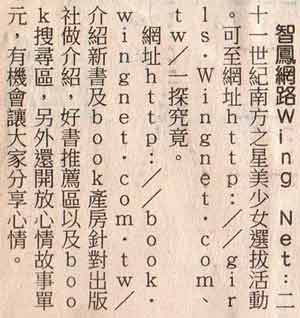 智鳳網路Wing Net：二
十一世紀南方之星美少女選拔活動
。可至網址http：//gir
ls．Wingnet．com、
tw/一探究竟。
網址http：//book．
wingnet．com．tw/
介紹新書及book產房針對出版
社做介紹，好書推薦區以及boo
k搜尋區，另外還開放心情故事單
元，有機會讓大家分享心情。